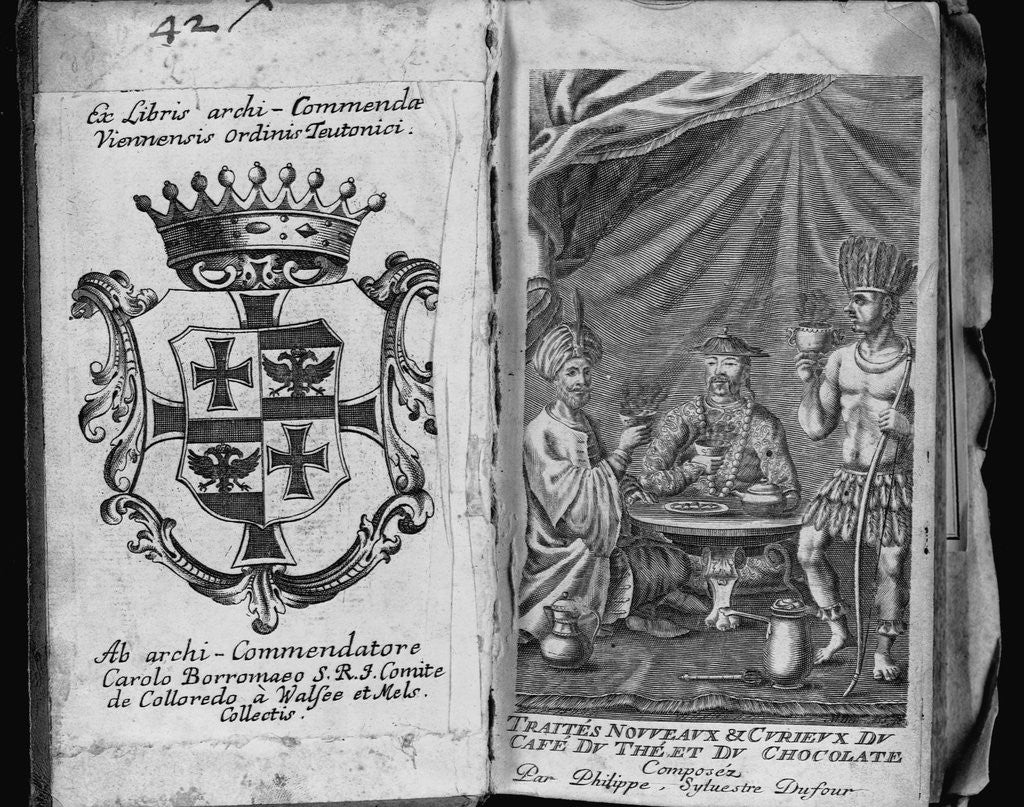 427
Ex Libris archi-Commendæ
Viennensis Ordinis Teutonici.
Ab archi-Commendatore
Carolo Borromaeo S.R.I. Comite
de Colloredo à Walsee et Mels.
Collectis.
TRAITÉS NOVVEAVX & CVRIEVX DV
CAFÉ DV THÉ ET DV CHOCOLATE
Composéz
Par Philippe, Sylvestre Dufour